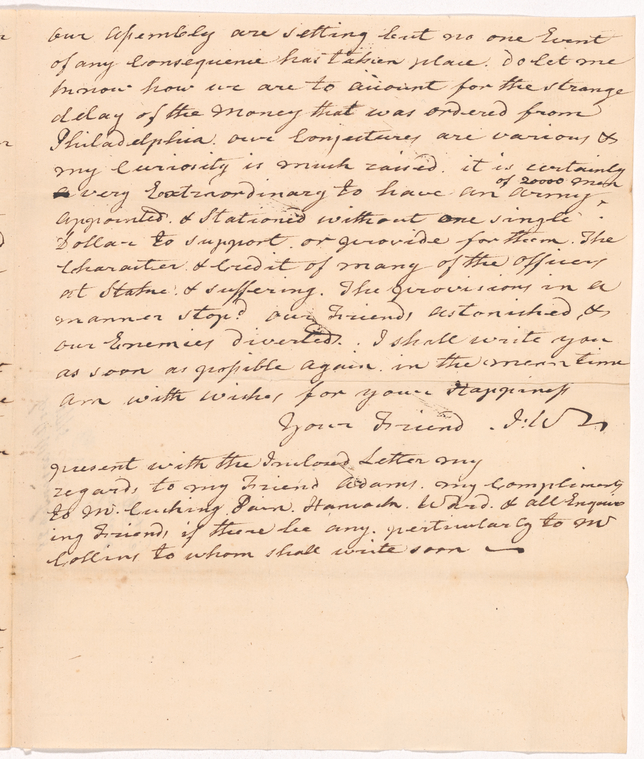 our Assembly are setting but no one Event
of any Consequence has taken place. do let me
know how we are to account for the strange
delay of the Money that was ordered from
Philadelphia our Conjectures are various &
my Curiosity is much raised. it is certainly
a very Extraordinary to have an Army of 20000 Men
appointed. & Stationed without one single
Dollar to support. or provide for them. The
Character & Credit of many of the Officers
at Stake. & suffering. The provisions in a
manner stop'd our Friends astonished, &
our Enemies diverted. I shall write you
as soon as possible again. in the mean time
am with wishes for your Happiness
Your Friend J: W
present with the Inclosed Letter my
regards to my Friend Adams. my Compliments
to Mr. Cushing. Pain. Hancock. Ward. & all Enquir
ing Friends if there be any. perticularly to Mr
Collins to whom shall write soon